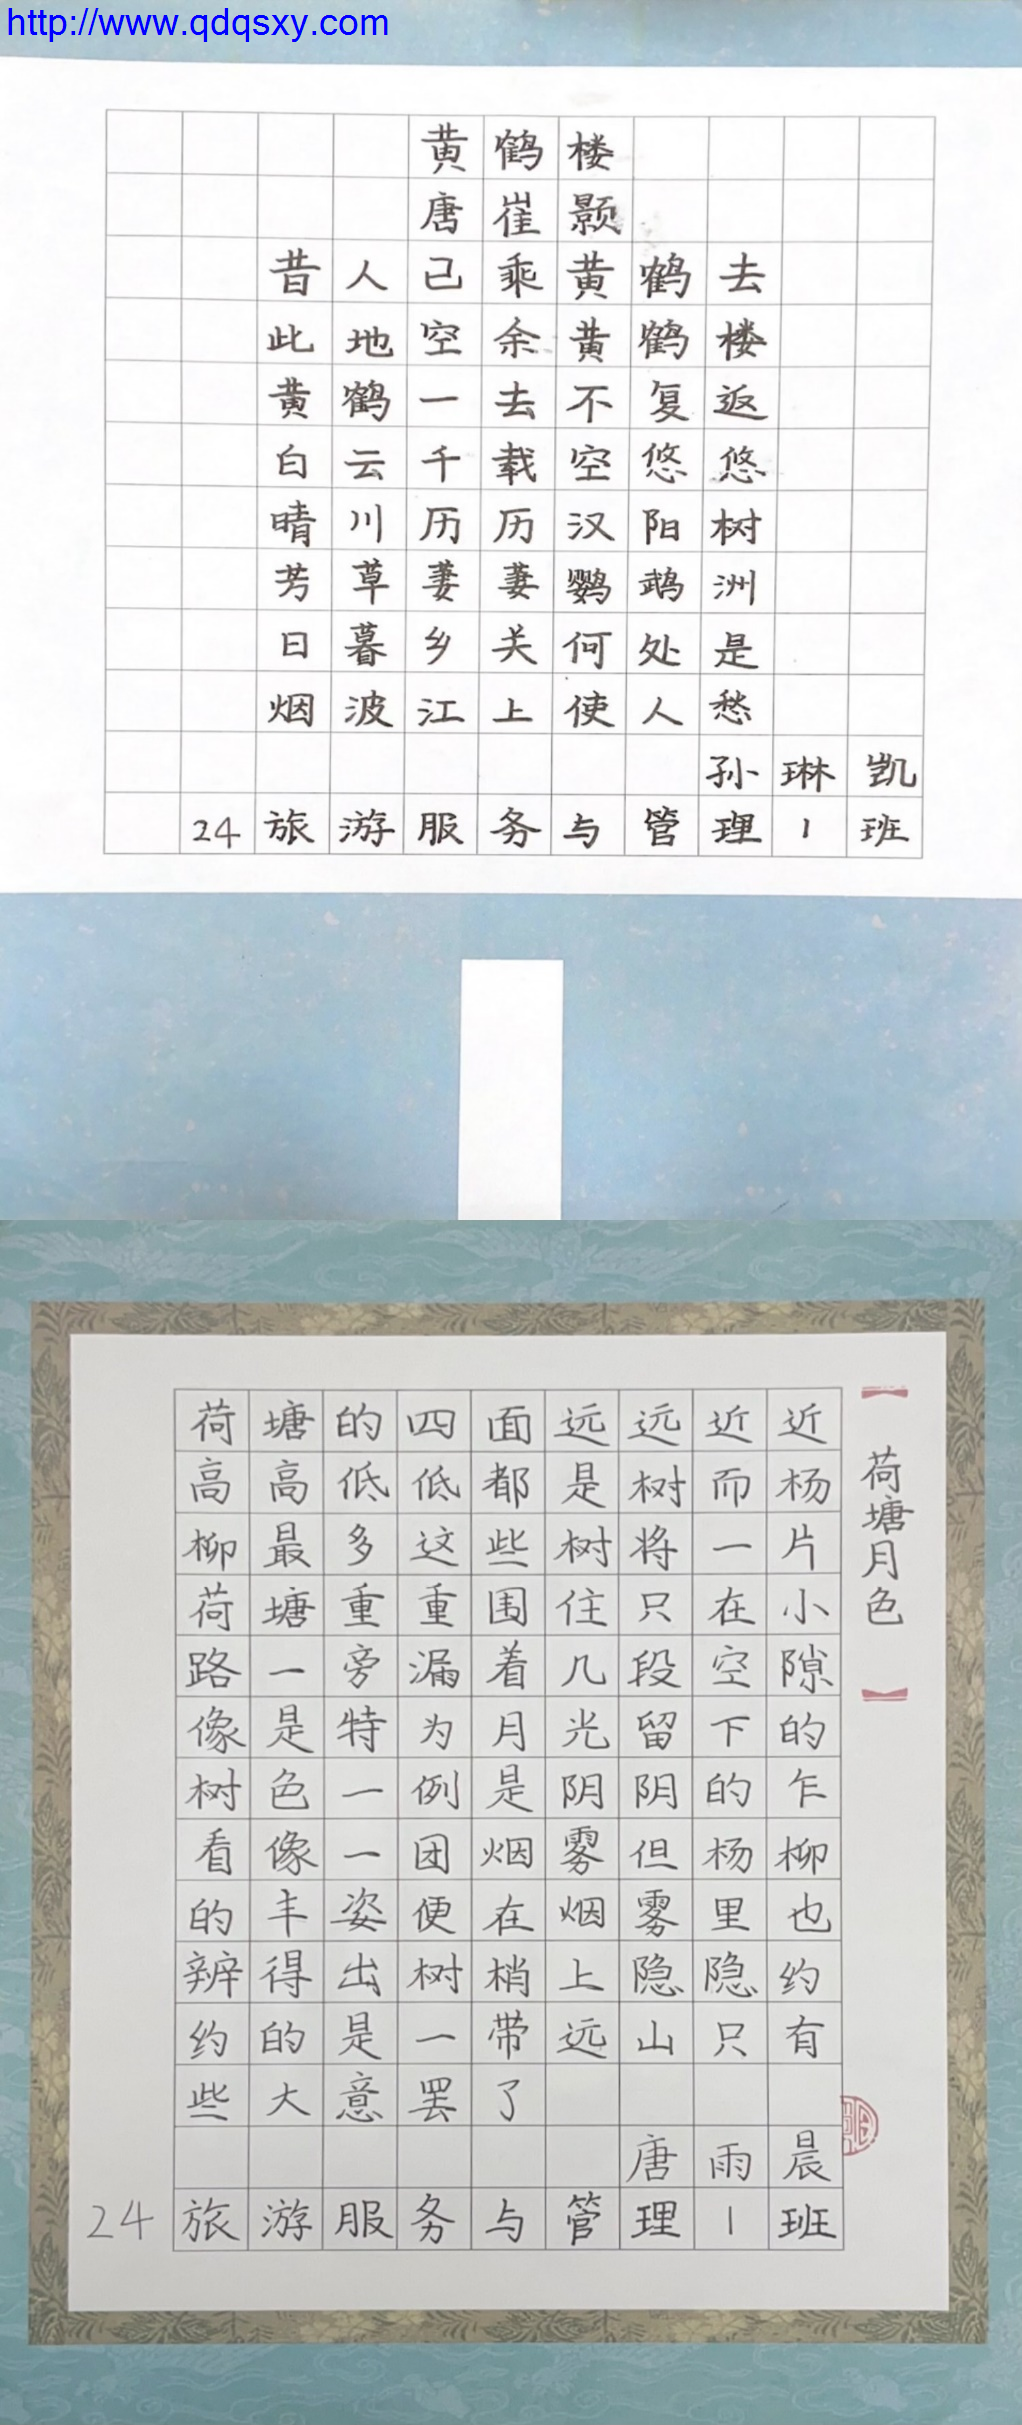 http://www.qdqsxy.com
黄鹤楼
唐崔颢
昔人已乘黄鹤去
此地空余黄鹤楼
黄鹤一去不复返
白云千载空悠悠
晴川历历汉阳树
芳草萋萋鹦鹉洲
日暮乡关何处是
烟波江上使人愁
孙琳凯
24旅游服务与管理1班
【荷塘月色】
荷塘的四面远远近近
高高低低都是树而杨
柳最多这些树将一片
荷塘重重围住只在小
路一旁漏着几段空隙
像是特为月光留下的
树色一例是阴阴的乍
看像一团烟雾但杨柳
的丰姿便在烟雾里也
辨得出树梢上隐隐约
约的是一带远山只有
些大意罢了
唐雨晨
24旅游服务与管理1班